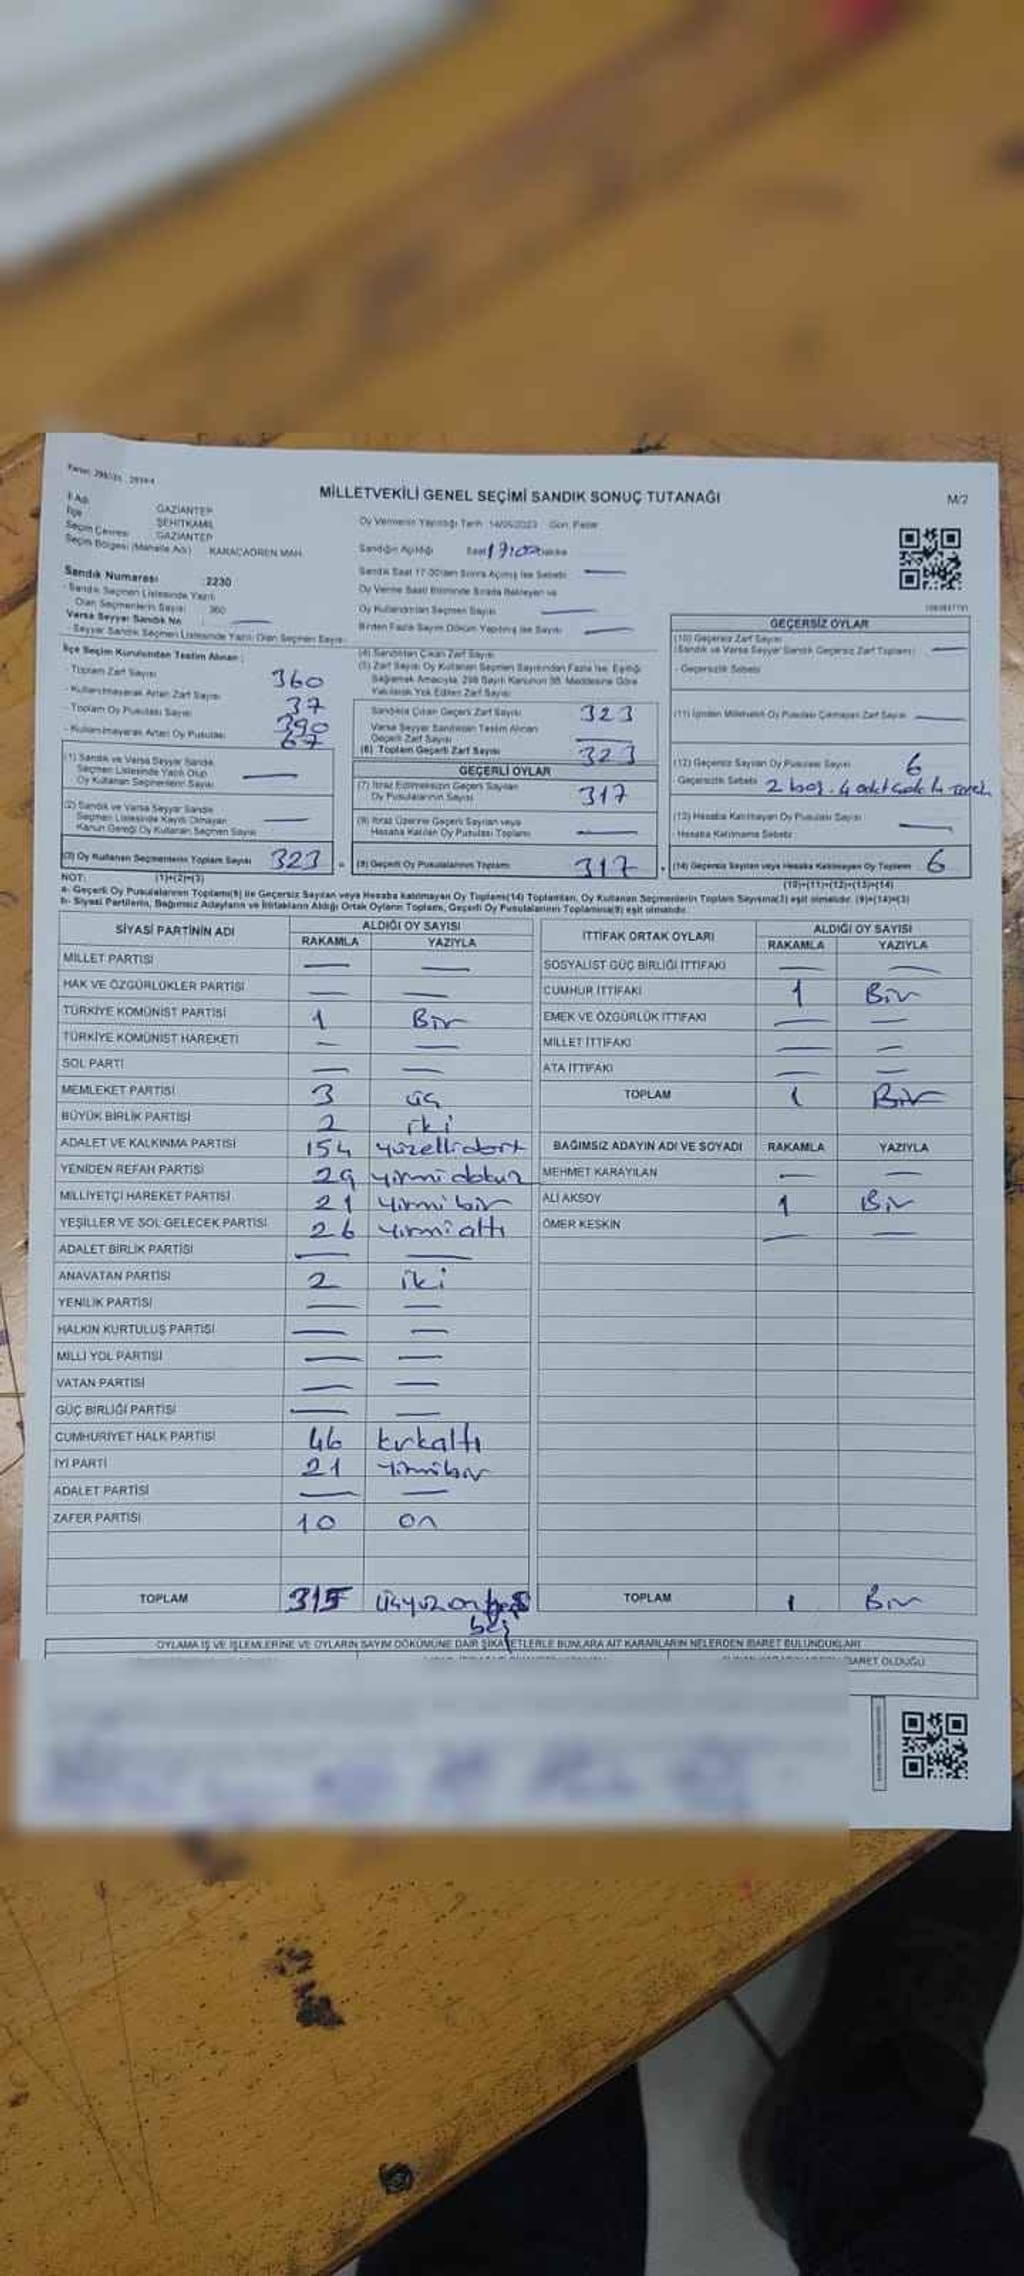 MİLLETVEKİLİ GENEL SEÇİMİ SANDIK SONUÇ TUTANAĞI
M/2
İl Adı GAZİANTEP
İlçe ŞEHİTKAMİL
Seçim Çevresi GAZİANTEP
Seçim Bölgesi (Mahalle Adı) KARACAÖREN MAH.
Sandık Numarası 2230
- Sandık Seçmen Listesinde Yazılı
Olan Seçmenlerin Sayısı 360
Varsa Seyyar Sandık No —
- Seyyar Sandık Seçmen Listesinde Yazılı Olan Seçmen Sayısı
Oy Vermenin Yapıldığı Tarih 14/05/2023 Gün Pazar
Sandığın Açıldığı Saat 17:00 Dakika
Sandık Saat 17.00'den Sonra Açılmış İse Sebebi —
Oy Verme Saati Bitiminde Sırada Bekleyen ve
Oy Kullandırılan Seçmen Sayısı —
Birden Fazla Sayım Döküm Yapılmış İse Sayısı —
İlçe Seçim Kurulundan Teslim Alınan :
- Toplam Zarf Sayısı 360
- Kullanılmayarak Artan Zarf Sayısı 37
- Toplam Oy Pusulası Sayısı 390
- Kullanılmayarak Artan Oy Pusulası 67
(1) Sandık ve Varsa Seyyar Sandık
Seçmen Listesinde Yazılı Olup
Oy Kullanan Seçmenlerin Sayısı —
(2) Sandık ve Varsa Seyyar Sandık
Seçmen Listesinde Kayıtlı Olmayan
Kanun Gereği Oy Kullanan Seçmen Sayısı —
(3) Oy Kullanan Seçmenlerin Toplam Sayısı 323
(4) Sandıktan Çıkan Zarf Sayısı
(5) Zarf Sayısı Oy Kullanan Seçmen Sayısından Fazla İse, Eşitliği
Sağlamak Amacıyla, 298 Sayılı Kanunun 98. Maddesine Göre
Yakılarak Yok Edilen Zarf Sayısı
Sandıkta Çıkan Geçerli Zarf Sayısı 323
Varsa Seyyar Sandıktan Teslim Alınan
Geçerli Zarf Sayısı —
(6) Toplam Geçerli Zarf Sayısı 323
GEÇERLİ OYLAR
(7) İtiraz Edilmeksizin Geçerli Sayılan
Oy Pusulalarının Sayısı 317
(8) İtiraz Üzerine Geçerli Sayılan veya
Hesaba Katılan Oy Pusulası Toplamı —
(9) Geçerli Oy Pusulalarının Toplamı 317
GEÇERSİZ OYLAR
(10) Geçersiz Zarf Sayısı
(Sandık ve Varsa Seyyar Sandık Geçersiz Zarf Toplamı) —
- Geçersizlik Sebebi
(11) İçinden Milletvekili Oy Pusulası Çıkmayan Zarf Sayısı —
(12) Geçersiz Sayılan Oy Pusulası Sayısı 6
- Geçersizlik Sebebi 2 boş. 4 adet çok
(13) Hesaba Katılmayan Oy Pusulası Sayısı —
- Hesaba Katılmama Sebebi
(14) Geçersiz Sayılan veya Hesaba Katılmayan Oy Toplamı 6
NOT: (1)+(2)=(3)
(10)+(11)+(12)+(13)=(14)
a- Geçerli Oy Pusulalarının Toplamı(9) ile Geçersiz Sayılan veya Hesaba katılmayan Oy Toplamı(14) Toplamları, Oy Kullanan Seçmenlerin Toplam Sayısına(3) eşit olmalıdır. (9)+(14)=(3)
b- Siyasi Partilerin, Bağımsız Adayların ve İttifakların Aldığı Ortak Oyların Toplamı, Geçerli Oy Pusulalarının Toplamına(9) eşit olmalıdır.
SİYASİ PARTİNİN ADI ALDIĞI OY SAYISI
RAKAMLA YAZIYLA
MİLLET PARTİSİ — —
HAK VE ÖZGÜRLÜKLER PARTİSİ — —
TÜRKİYE KOMÜNİST PARTİSİ 1 Bir
TÜRKİYE KOMÜNİST HAREKETİ — —
SOL PARTİ — —
MEMLEKET PARTİSİ 3 üç
BÜYÜK BİRLİK PARTİSİ 2 iki
ADALET VE KALKINMA PARTİSİ 154 yüzellidört
YENİDEN REFAH PARTİSİ 29 yirmidokuz
MİLLİYETÇİ HAREKET PARTİSİ 21 yirmibir
YEŞİLLER VE SOL GELECEK PARTİSİ 26 yirmialtı
ADALET BİRLİK PARTİSİ — —
ANAVATAN PARTİSİ 2 iki
YENİLİK PARTİSİ — —
HALKIN KURTULUŞ PARTİSİ — —
MİLLİ YOL PARTİSİ — —
VATAN PARTİSİ — —
GÜÇ BİRLİĞİ PARTİSİ — —
CUMHURİYET HALK PARTİSİ 46 kırkaltı
İYİ PARTİ 21 yirmibir
ADALET PARTİSİ — —
ZAFER PARTİSİ 10 on
TOPLAM 315 üçyüzonbeş
beş
İTTİFAK ORTAK OYLARI ALDIĞI OY SAYISI
RAKAMLA YAZIYLA
SOSYALİST GÜÇ BİRLİĞİ İTTİFAKI — —
CUMHUR İTTİFAKI 1 Bir
EMEK VE ÖZGÜRLÜK İTTİFAKI — —
MİLLET İTTİFAKI — —
ATA İTTİFAKI — —
TOPLAM 1 Bir
BAĞIMSIZ ADAYIN ADI VE SOYADI RAKAMLA YAZIYLA
MEHMET KARAYILAN — —
ALİ AKSOY 1 Bir
ÖMER KESKİN — —
TOPLAM 1 Bir
OYLAMA İŞ VE İŞLEMLERİNE VE OYLARIN SAYIM DÖKÜMÜNE DAİR ŞİKAYETLERLE BUNLARA AİT KARARLARIN NELERDEN İBARET BULUNDUKLARI
İBARET OLDUĞU